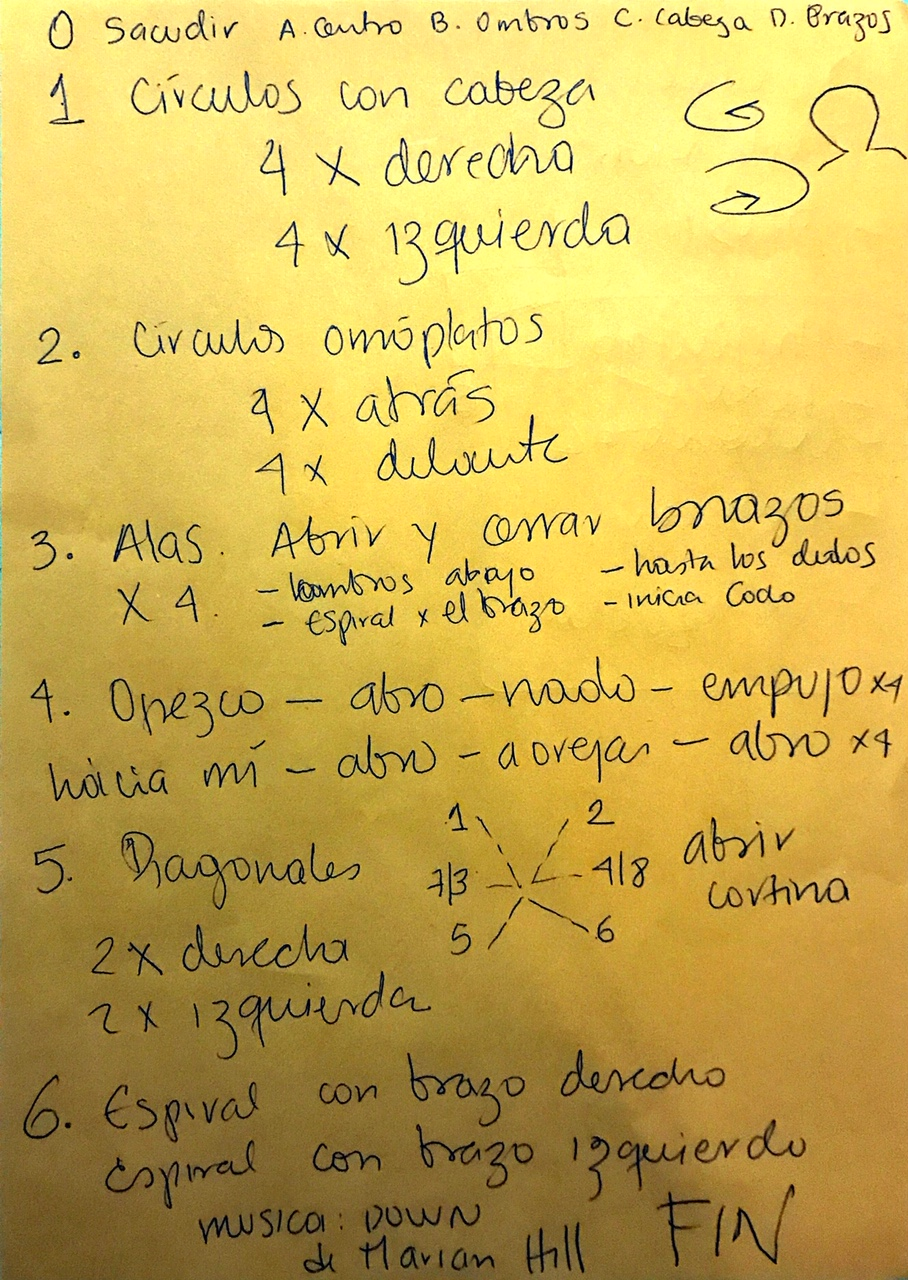 0 Sacudir A. Centro B. Ombros C. Cabeza D. Brazos
1 Círculos con cabeza
4 x derecha
4 x izquierda
2. Círculos omóplatos
4 x atrás
4 x delante
3. Alas. Abrir y cerrar brazos
x 4. - hombros abajo - hasta los dedos
- Espiral x el brazo - inicia codo
4. Ofrezco - abro - nado - empujo x4
hácia mí - abro - a orejas - abro x4
5. Diagonales
1 2
7/3 4/8 abrir
5 6 cortina
2 x derecha
2 x izquierda
6. Espiral con brazo derecho
Espiral con brazo izquierdo
musica: DOWN
de Marian Hill FIN